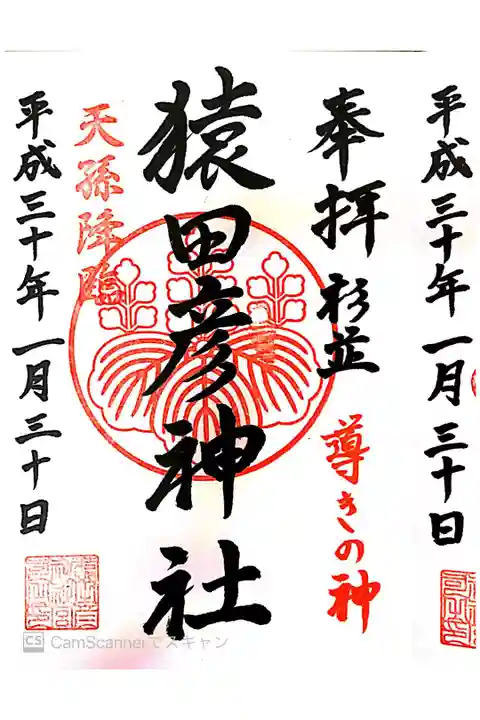 平成三十年一月三十日
奉拝 杉並
導きの神
猿田彦神社
天孫降臨
平成三十年一月三十日
CS CamScannerでスキャン